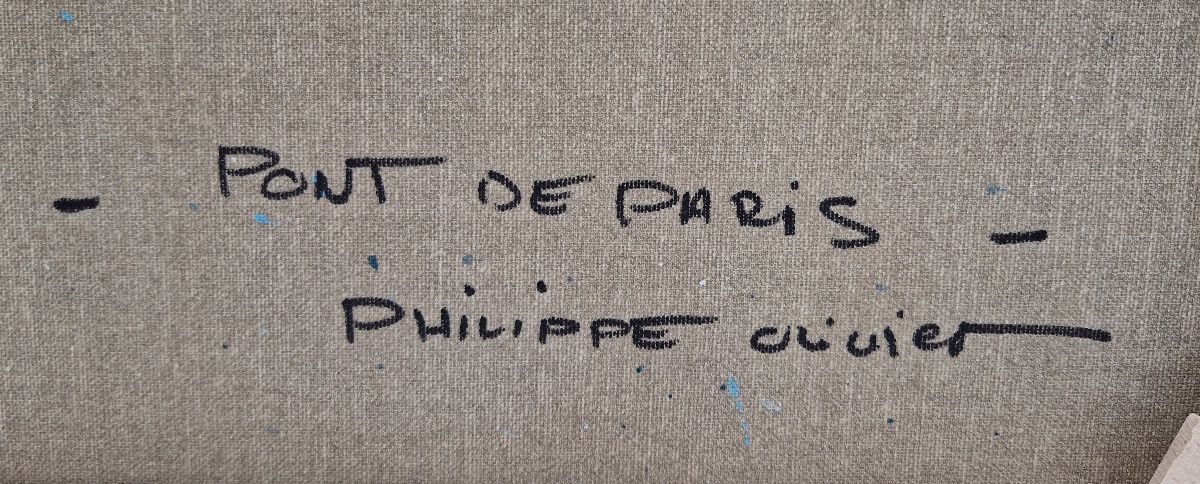 - PONT DE PARiS -
PHiLiPPE olivier